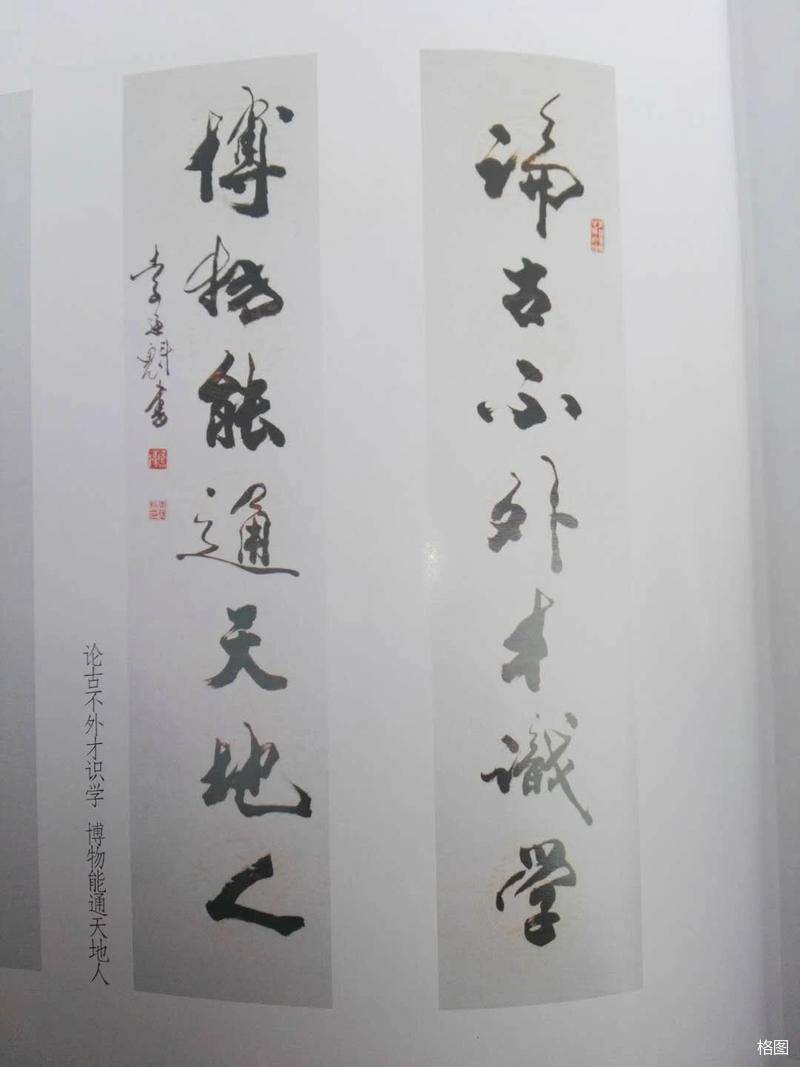 論古不外才識學
博物能通天地人
论古不外才识学 博物能通天地人
格图